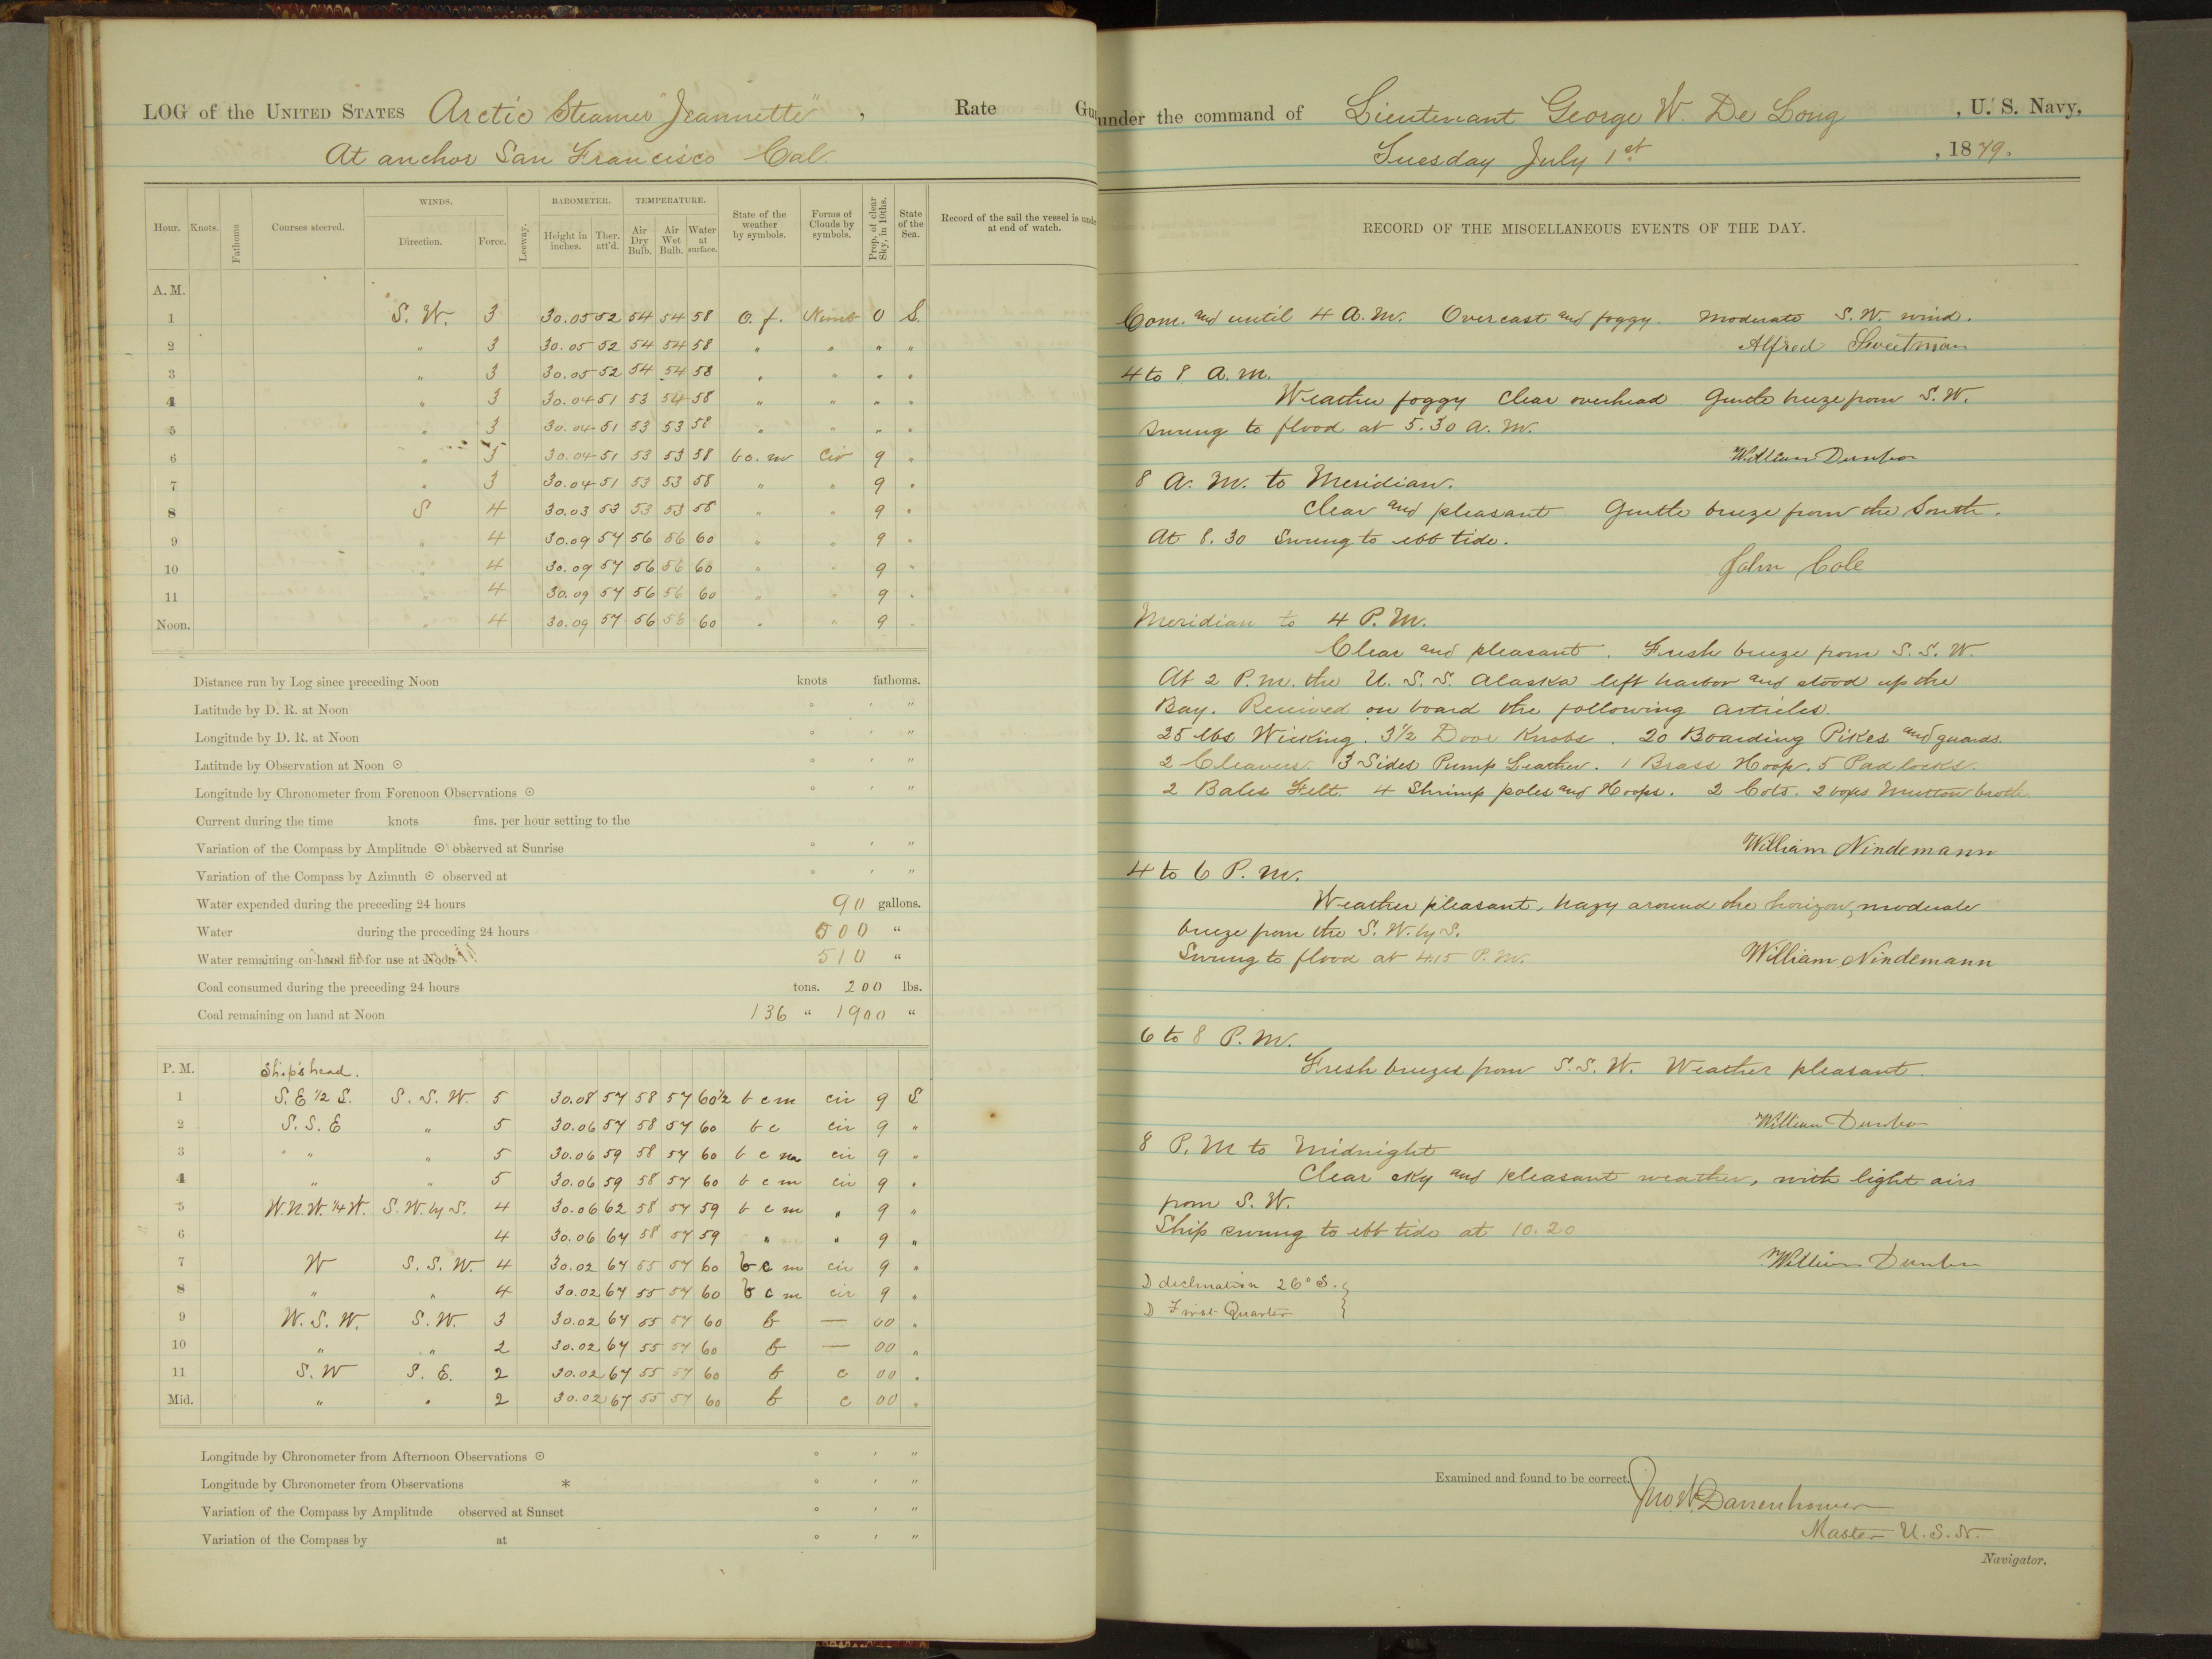 LOG of the UNITED STATES Arctic Steamer "Jeannette", Rate Gu
At anchor San Francisco Cal.
Hour. Knots. Fathoms Courses steered. WINDS. Direction. Force. Leeway. BAROMETER. Height in inches. Ther. att'd. TEMPERATURE. Air Dry Bulb. Air Wet Bulb. Water at surface. State of the weather by symbols. Forms of Clouds by symbols. Prop. of clear Sky, in 10ths. State of the Sea. Record of the sail the vessel is under at end of watch.
A. M.
1 S. W. 3 30.05 52 54 54 58 O. f. Nimb 0 S.
2 " 3 30.05 52 54 54 58 " " " "
3 " 3 30.05 52 54 54 58 " " " "
4 " 3 30.04 51 53 54 58 " " " "
5 " 3 30.04 51 53 53 58 " " " "
6 " 3 30.04 51 53 53 58 bc. m Cir 9 "
7 " 3 30.04 51 53 53 58 " " 9 "
8 S 4 30.03 53 53 53 58 " " 9 "
9 " 4 30.09 57 56 56 60 " " 9 "
10 " 4 30.09 57 56 56 60 " " 9 "
11 " 4 30.09 57 56 56 60 " " 9 "
Noon. " 4 30.09 57 56 56 60 " " 9 "
Distance run by Log since preceding Noon knots fathoms.
Latitude by D. R. at Noon ° ' "
Longitude by D. R. at Noon ° ' "
Latitude by Observation at Noon ☉ ° ' "
Longitude by Chronometer from Forenoon Observations ☉ ° ' "
Current during the time knots fms. per hour setting to the
Variation of the Compass by Amplitude ☉ observed at Sunrise ° ' "
Variation of the Compass by Azimuth ☉ observed at ° ' "
Water expended during the preceding 24 hours 90 gallons.
Water during the preceding 24 hours 500 "
Water remaining on hand fit for use at Noon 510 "
Coal consumed during the preceding 24 hours tons. 200 lbs.
Coal remaining on hand at Noon 136 " 1900 "
P. M. Ship's head.
1 S. E ½ S. S. S. W. 5 30.08 57 58 57 60½ b c m cir 9 S
2 S. S. E " 5 30.06 57 58 57 60 b c cir 9 "
3 " " " 5 30.06 59 58 57 60 b c m cir 9 "
4 " " 5 30.06 59 58 57 60 b c m cir 9 "
5 W.N.W. ¼ W. S. W. by S. 4 30.06 62 58 57 59 b c m " 9 "
6 4 30.06 67 58 57 59 " " 9 "
7 W S. S. W. 4 30.02 67 55 57 60 b c m cir 9 "
8 " " 4 30.02 67 55 57 60 b c m cir 9 "
9 W. S. W. S. W. 3 30.02 67 55 57 60 b — 00 "
10 " " 2 30.02 67 55 57 60 b — 00 "
11 S. W S. E. 2 30.02 67 55 57 60 b c 00 "
Mid. " " 2 30.02 67 55 57 60 b c 00 "
Longitude by Chronometer from Afternoon Observations ☉ ° ' "
Longitude by Chronometer from Observations * ° ' "
Variation of the Compass by Amplitude observed at Sunset ° ' "
Variation of the Compass by at ° ' "
under the command of Lieutenant George W. De Long, U. S. Navy,
Tuesday July 1st, 1879.
RECORD OF THE MISCELLANEOUS EVENTS OF THE DAY.
Com. and until 4 A.M. Overcast and foggy. Moderate S. W. wind.
Alfred Sweetman
4 to 8 A. M.
Weather foggy Clear overhead Gentle breeze from S. W.
Swung to flood at 5.30 A. M.
William Dunbar
8 A. M. to Meridian.
Clear and pleasant Gentle breeze from the South.
At 8.30 Swung to ebb tide.
John Cole
Meridian to 4 P. M.
Clear and pleasant. Fresh breeze from S. S. W.
At 2 P.M. the U. S. S. Alaska left harbor and stood up the
Bay. Received on board the following articles.
25 lbs Wicking. 3½ Door Knobs. 20 Boarding Pikes and guards.
2 Cleavers. 3 Sides Pump Leather. 1 Brass Hoop. 5 Padlocks.
2 Bales Felt. 4 Shrimp poles and Hoops. 2 Cots. 2 boxes Mutton broth
William Nindemann
4 to 6 P. M.
Weather pleasant, hazy around the horizon, moderate
breeze from the S. W. by S.
Swung to flood at 4.15 P. M. William Nindemann
6 to 8 P. M.
Fresh breezes from S. S. W. Weather pleasant.
William Dunbar
8 P. M to Midnight
Clear sky and pleasant weather, with light airs
from S. W.
Ship swung to ebb tide at 10.20
William Dunbar
☽ declination 26° S. }
☽ First Quarter }
Examined and found to be correct. Jno. W. Danenhower
Master U. S. N.
Navigator.